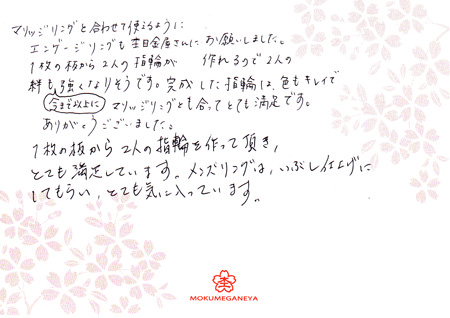 マリッジリングと合わせて使えるように
エンゲージリングも杢目金屋さんにお願いしました。
1枚の板から2人の指輪が 作れるので2人の
絆も強くなりそうです。完成した指輪は、色もキレイで
今まで以上に マリッジリングとも合ってとても満足です。
ありがとうございました。
1枚の板から2人の指輪を作って頂き、
とても満足しています。メンズリングは、いぶし仕上げに
してもらい、とても気に入っています。
杢
MOKUMEGANEYA